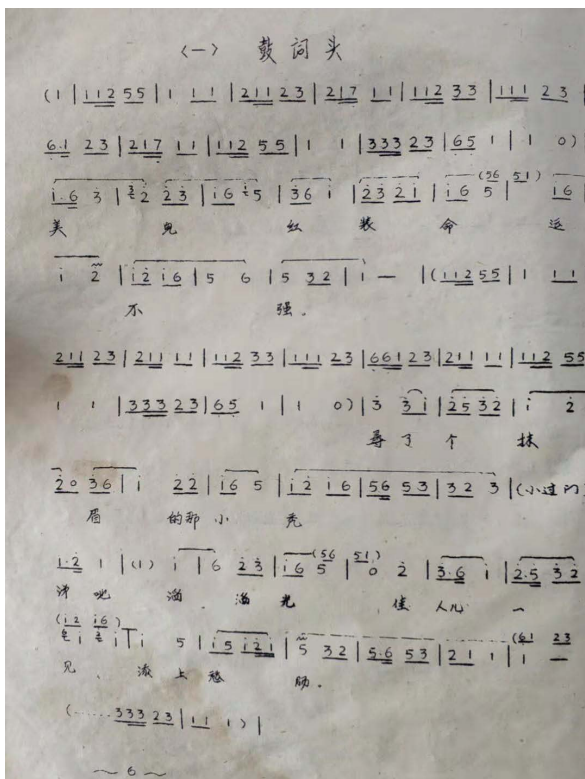 〈一〉 鼓词头
(1 | 112 55 | 1 11 | 211 23 | 217 11 | 112 33 | 111 23 |
6.1 23 | 217 11 | 112 55 | 1 1 | 333 23 | 65 1 | 1 0)
i.6 3 | 2 23 | i6 5 | 36 i | 23 2i | i6 5 (56 | 51) i6
美 儿 红 装 命 运
i 2 | i2 i6 | 5 6 | 5 32 | 1 — | (112 55 | 1 11
不 强.
211 23 | 211 11 | 112 33 | 111 23 | 661 23 | 211 11 | 112 55
1 1 | 333 23 | 65 1 | 1 0) | 3 3i | 25 32 | i 2
寻 了 个 抹
20 36 | i 22 | i6 5 | i2 i6 | 56 53 | 32 3 | (小过门
眉 的那 小 秃
1.2 1 | (1) i | 6 23 | i6 5 (56 | 51) 0 2 | 3.6 i | 2.5 32
溜 光 佳 人儿 一
(i2 i6) i i i i 5 | i5 i2i | 5 32 | 5.6 53 | 21 1 | 1 — (61 23
见, 添 上 愁 肠.
(…… 333 23 | 11 1) |
～ 6 ～